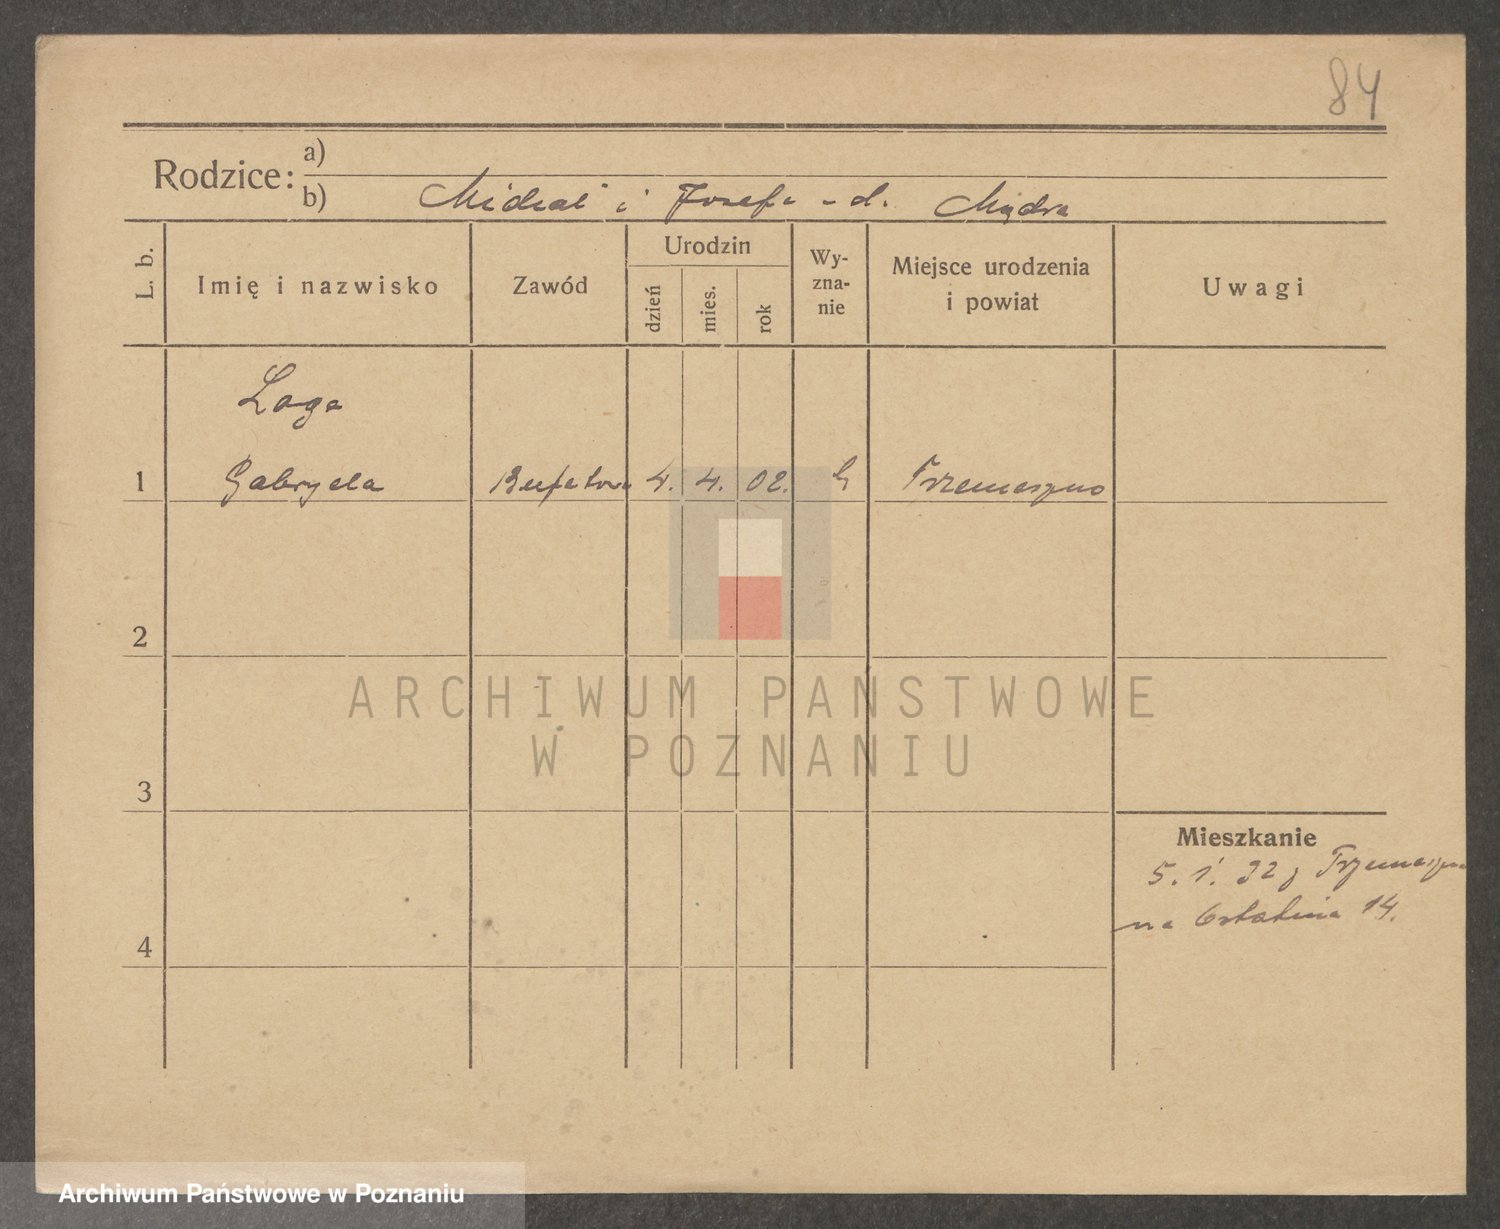 84
Rodzice: a)
b) Michał i Józefa - d. Mądra
L. b.
Imię i nazwisko
Zawód
Urodzin
dzień
mies.
rok
Wy-
zna-
nie
Miejsce urodzenia
i powiat
Uwagi
Loga
1 Gabryela Bufetowa 4. 4. 02. Trzemeszno
2
3
4
Mieszkanie
5. 1. 32 z Trzemeszna
na 14.
ARCHIWUM PAŃSTWOWE
W POZNANIU
Archiwum Państwowe w Poznaniu